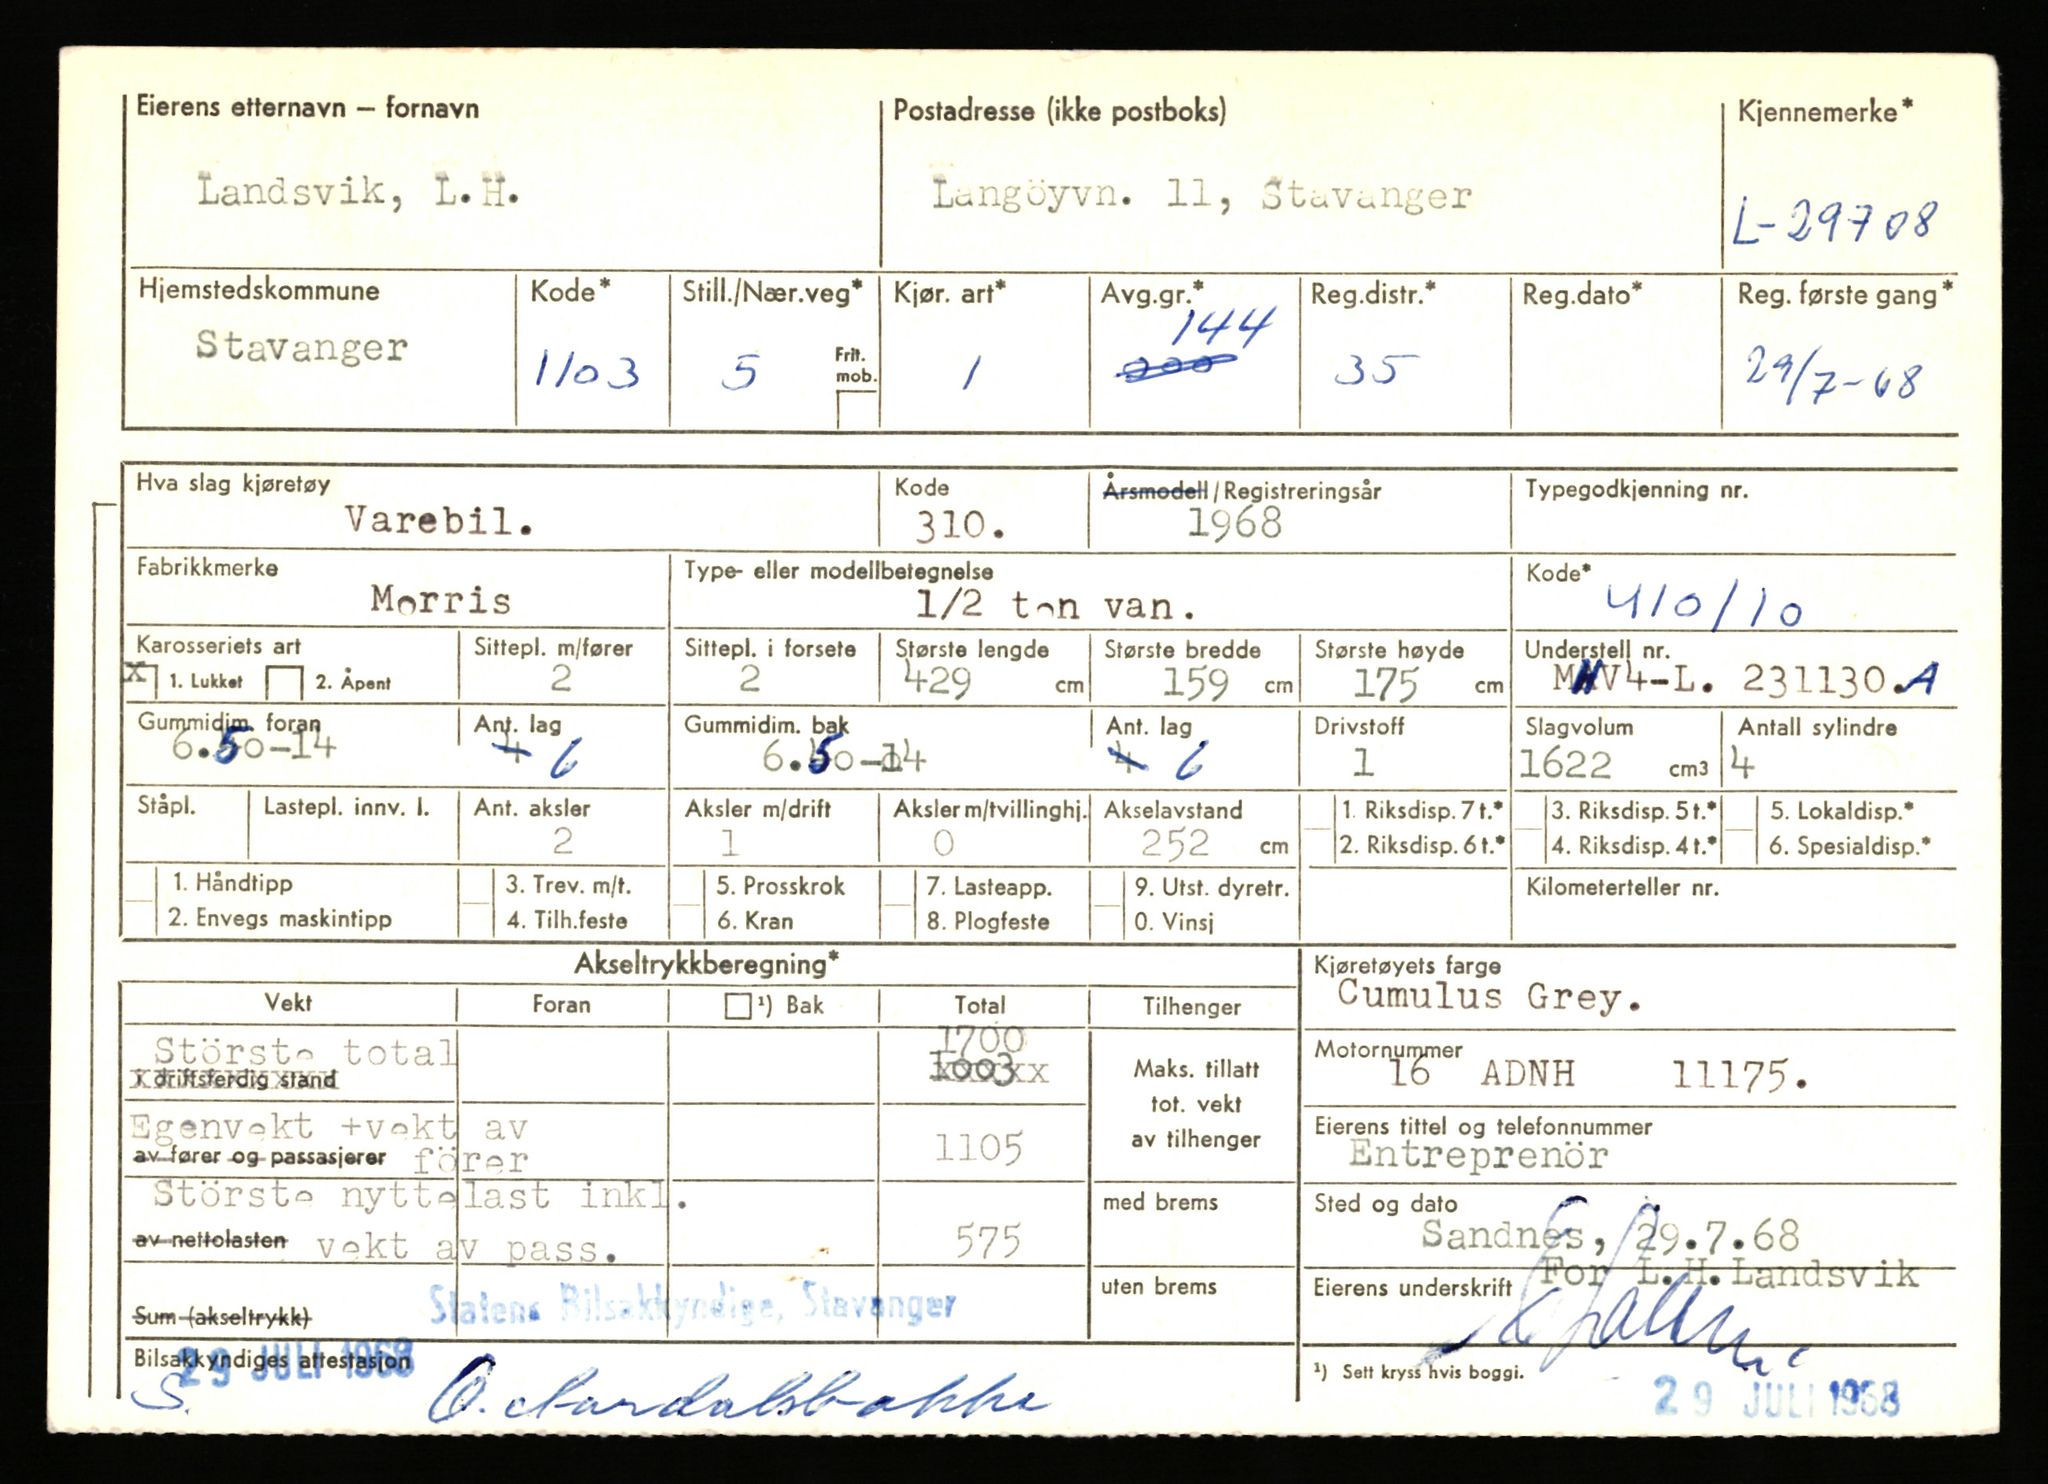 Eierens etternavn – fornavn Postadresse (ikke postboks) Kjennemerke*
Landsvik, L.H. Langöyvn. 11, Stavanger L-29708
Hjemstedskommune Kode* Still./Nær.veg* Kjør. art* Avg.gr.* Reg.distr.* Reg.dato* Reg. første gang*
Stavanger 1103 5 Frit. mob. 1 200 144 35 29/7-68
Hva slag kjøretøy Kode Årsmodell / Registreringsår Typegodkjenning nr.
Varebil. 310. 1968
Fabrikkmerke Type- eller modellbetegnelse Kode*
Morris 1/2 ton van. 410/10
Karosseriets art Sittepl. m/fører Sittepl. i forsete Største lengde Største bredde Største høyde Understell nr.
X 1. Lukket 2. Åpent 2 2 429 cm 159 cm 175 cm MHV4-L. 231130.A
Gummidim. foran Ant. lag Gummidim. bak Ant. lag Drivstoff Slagvolum Antall sylindre
6.50-14 4 6 6.50-14 4 6 1 1622 cm3 4
Ståpl. Lastepl. innv. l. Ant. aksler Aksler m/drift Aksler m/tvillinghj. Akselavstand 1. Riksdisp. 7 t.* 3. Riksdisp. 5 t.* 5. Lokaldisp.*
2 1 0 252 cm 2. Riksdisp. 6 t.* 4. Riksdisp. 4 t.* 6. Spesialdisp.*
1. Håndtipp 3. Trev. m/t. 5. Prosskrok 7. Lasteapp. 9. Utst. dyretr. Kilometerteller nr.
2. Envegs maskintipp 4. Tilh.feste 6. Kran 8. Plogfeste 0. Vinsj
Akseltrykkberegning* Kjøretøyets farge
Cumulus Grey.
Vekt Foran ¹) Bak Total Tilhenger
Störste total 1700
i driftsferdig stand 1003
Maks. tillatt
tot. vekt
av tilhenger
Motornummer
16 ADNH 11175.
Egenvekt +vekt av
av fører og passasjerer förer 1105
Eierens tittel og telefonnummer
Entreprenör
Störste nyttelast inkl. med brems
av nettolasten vekt av pass. 575
Sted og dato
Sandnes, 29.7.68
For L.H.Landsvik
Eierens underskrift
uten brems
Statens Bilsakkyndige, Stavanger
Sum (akseltrykk)
29 JULI 1968
Bilsakkyndiges attestasjon
S.
¹) Sett kryss hvis boggi.
29 JULI 1968